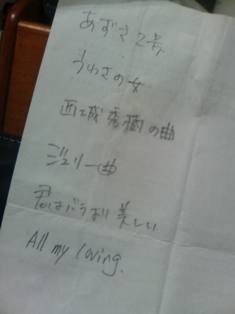 あずさ2号
うわさの女
西城秀樹の曲
ジュリー曲
君はバラより美しい
All my loving.